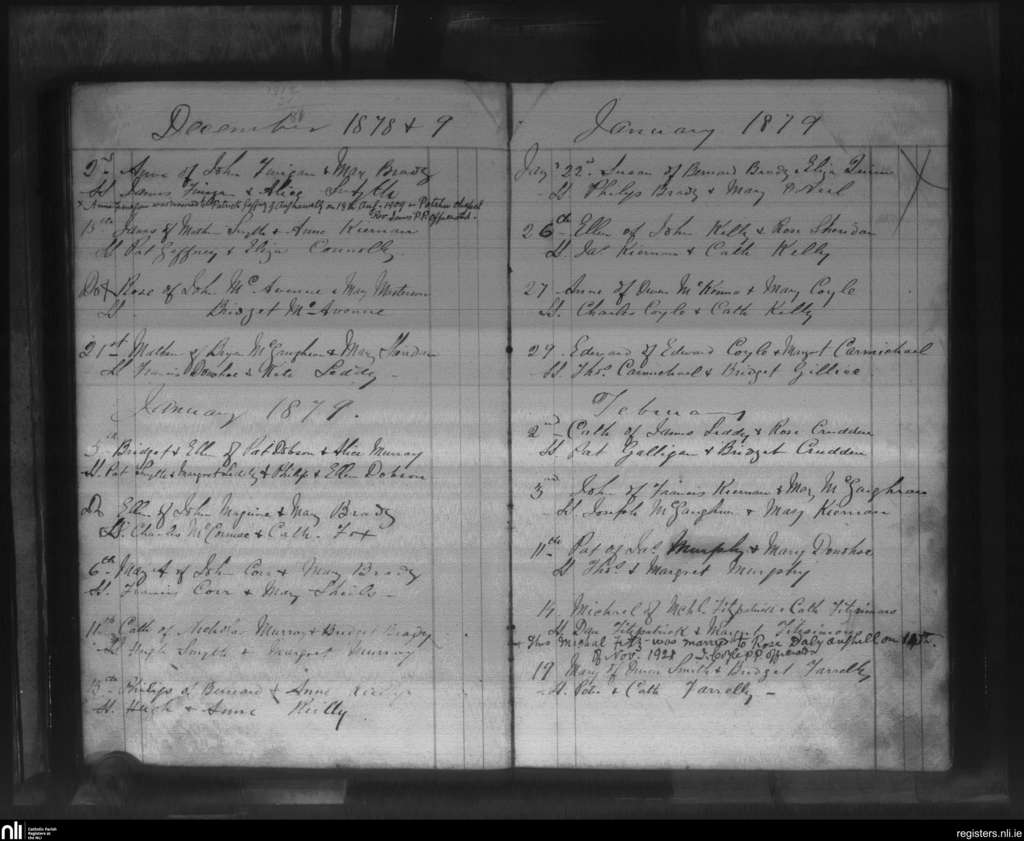 December 1878 & 9
2nd Anne of John Finigan & Mary Brady
St. James Finigan & Alice Smyth
x Anne Finigan was married to Patrick Gaffney of on 18th Aug. 1909 in chapel
P.P. officiated.
15th James of Mathew Smyth & Anne Kiernan
St Pat Gaffney & Eliza Connolly
Do Rose of John McAvenue & Mary Masterson
St Bridget McAvenue
21st Mathew of Bryan McGaughran & Mary Sheridan
St Francis Donohoe & Kate Leddy
January 1879.
5th Bridget & Ellen of Pat Dobson & Alice Murray
St. Pat Smyth & Margret Leddy & Philip & Ellen Dobson
Do Ellen of John Maguire & Mary Brady
St. Charles McCormac & Cath. Fox
6th Mary A of John Corr & Mary Brady
St. Francis Corr & Mary Sheils
11th Cath of Nicholas Murray & Bridget Brady
St Hugh Smyth & Margret Murray
13th Philip of Bernard & Anne Reilly
St. Hugh & Anne Reilly
January 1879
Jany 22nd Susan of Bernard Brady & Eliza Quinn
St Philip Brady & Mary
26th Ellen of John Kelly & Rose Sheridan
St. Jas Kiernan & Cath Kelly
27 Anne of Owen McKenna & Mary Coyle
St. Charles Coyle & Cath Kelly
29 Edward of Edward Coyle & Margt Carmichael
St. Thos. Carmichael & Bridget Gillice
February
2nd Cath of James Leddy & Rose Crudden
St. Pat Galligan & Bridget Crudden
3rd John of Francis Kiernan & Mary McGaughran
St. Joseph McGaughran & Mary Kiernan
11th Pat of Jas. Murphy & Mary Donohoe
St Thos. & Margret Murphy
14 Michael of Michl. Fitzpatrick & Cath Fitzsimons
St. Fitzpatrick & Margret Fitzsimons
This Michael Fitz was married to Rose Daly on 14th
of Nov. 1928 J. Coyle P.P. officiated
19 Mary of Owen Smith & Bridget Farrelly
St. Peter & Cath Farrelly
nli
Catholic Parish
Registers at
the NLI
registers.nli.ie